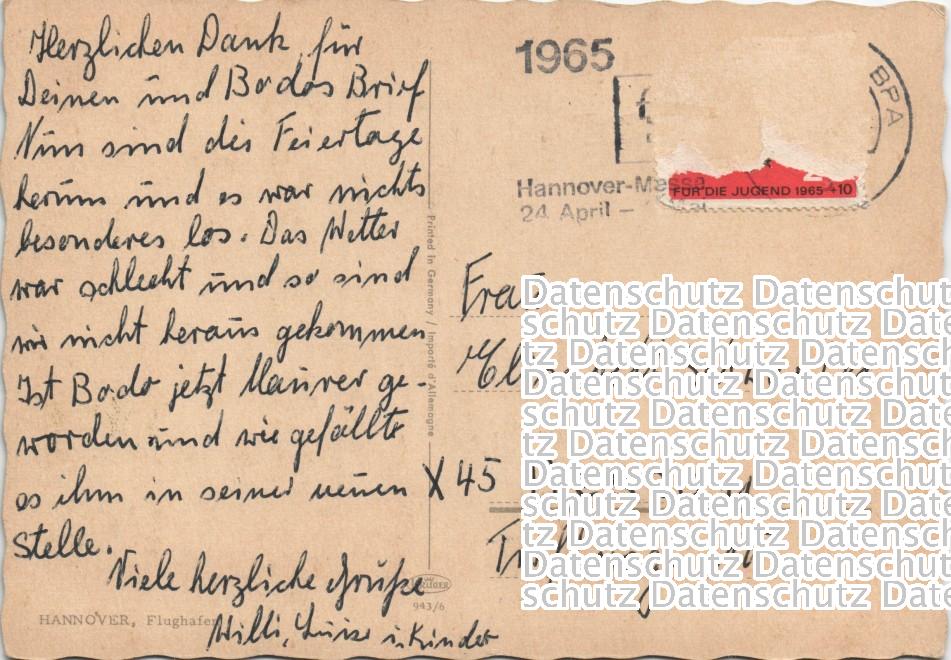 Herzlichen Dank für
Deinen und Bodos Brief
Nun sind die Feiertage
herum und es war nichts
besonderes los. Das Wetter
war schlecht und so sind
wir nicht heraus gekommen
Ist Bodo jetzt Maurer ge-
worden und wie gefällts
es ihm in seiner neuen
Stelle.
Viele herzliche Grüße
Willi, Luise u. Kinder
HANNOVER, Flughafen
Printed in Germany / Importé d'Allemagne
KRÜGER
943/6
1965
Hannover-Messe
24 April –
BPA
FÜR DIE JUGEND 1965 +10
Frau
X 45
Datenschutz Datenschutz Daten
schutz Datenschutz Datenschu
tz Datenschutz Datenschutz
Datenschutz Datenschutz Daten
schutz Datenschutz Datenschu
tz Datenschutz Datenschutz
Datenschutz Datenschutz Daten
schutz Datenschutz Datenschu
tz Datenschutz Datenschutz
Datenschutz Datenschutz Daten
schutz Datenschutz Datenschu